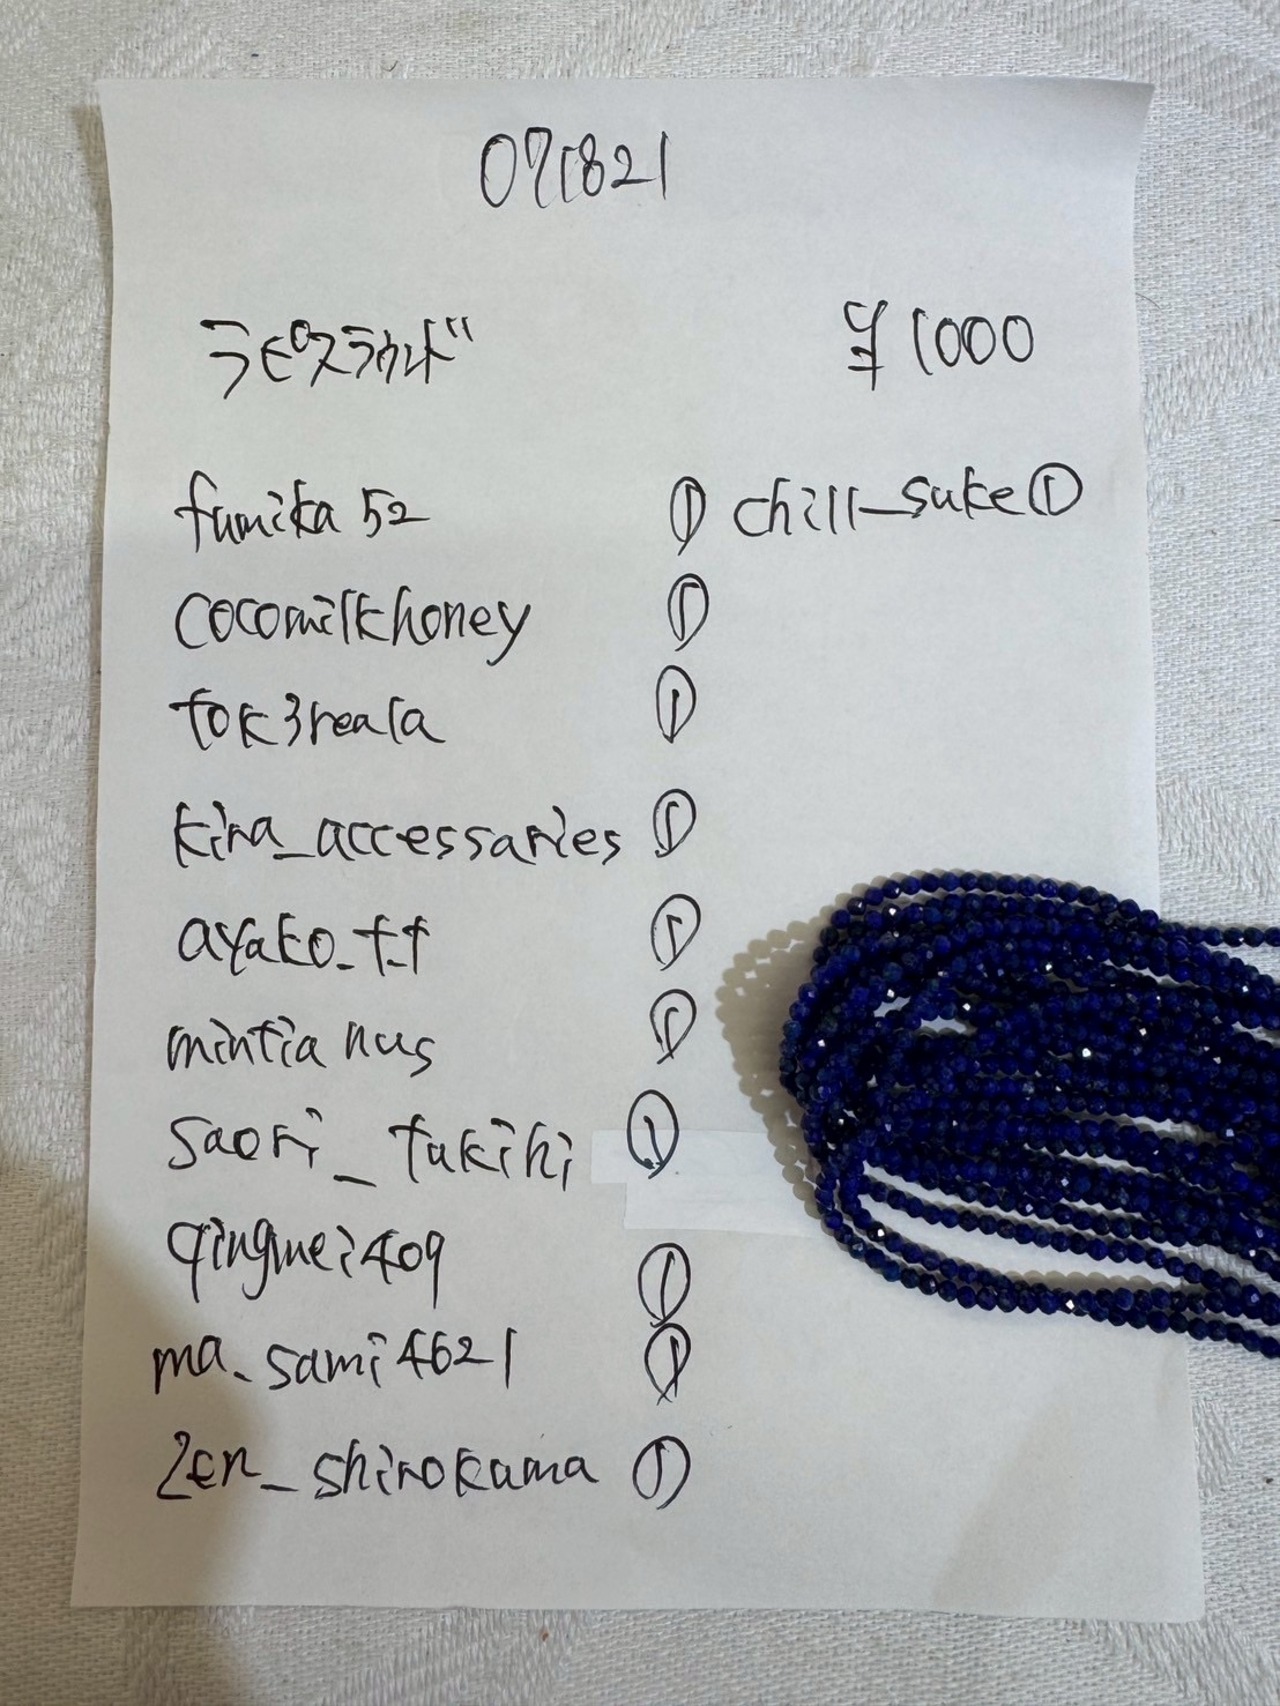 071821
ラピスラウンド ¥1000
fumika52 ① chill_suke①
cocomilkhoney ①
tok3reala ①
kira_accessaries ①
ayako_t.t ①
mintianus ①
saori_fukihi ①
qingmei409 ①
ma_sami4621 ①
zen_shirokama ①